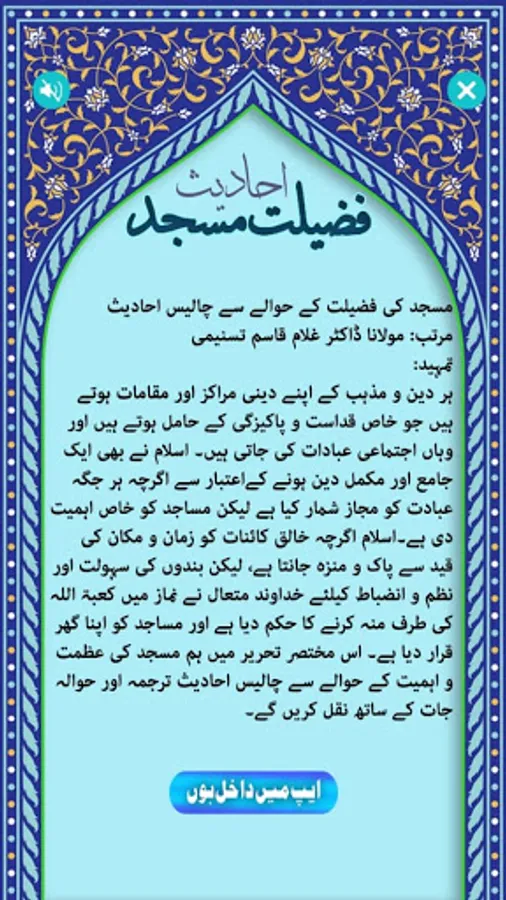 احادیث
فضیلت مسجد
مسجد کی فضیلت کے حوالے سے چالیس احادیث
مرتب: مولانا ڈاکٹر غلام قاسم تسنیمی
تمہید:
ہر دین و مذہب کے اپنے دینی مراکز اور مقامات ہوتے
ہیں جو خاص قداست و پاکیزگی کے حامل ہوتے ہیں اور
وہاں اجتماعی عبادات کی جاتی ہیں۔ اسلام نے بھی ایک
جامع اور مکمل دین ہونے کےاعتبار سے اگرچہ ہر جگہ
عبادت کو مجاز شمار کیا ہے لیکن مساجد کو خاص اہمیت
دی ہے۔اسلام اگرچہ خالق کائنات کو زمان و مکان کی
قید سے پاک و منزہ جانتا ہے، لیکن بندوں کی سہولت اور
نظم و انضباط کیلئے خداوند متعال نے نماز میں کعبۃ اللہ
کی طرف منہ کرنے کا حکم دیا ہے اور مساجد کو اپنا گھر
قرار دیا ہے۔ اس مختصر تحریر میں ہم مسجد کی عظمت
و اہمیت کے حوالے سے چالیس احادیث ترجمہ اور حوالہ
جات کے ساتھ نقل کریں گے۔
ایپ میں داخل ہوں